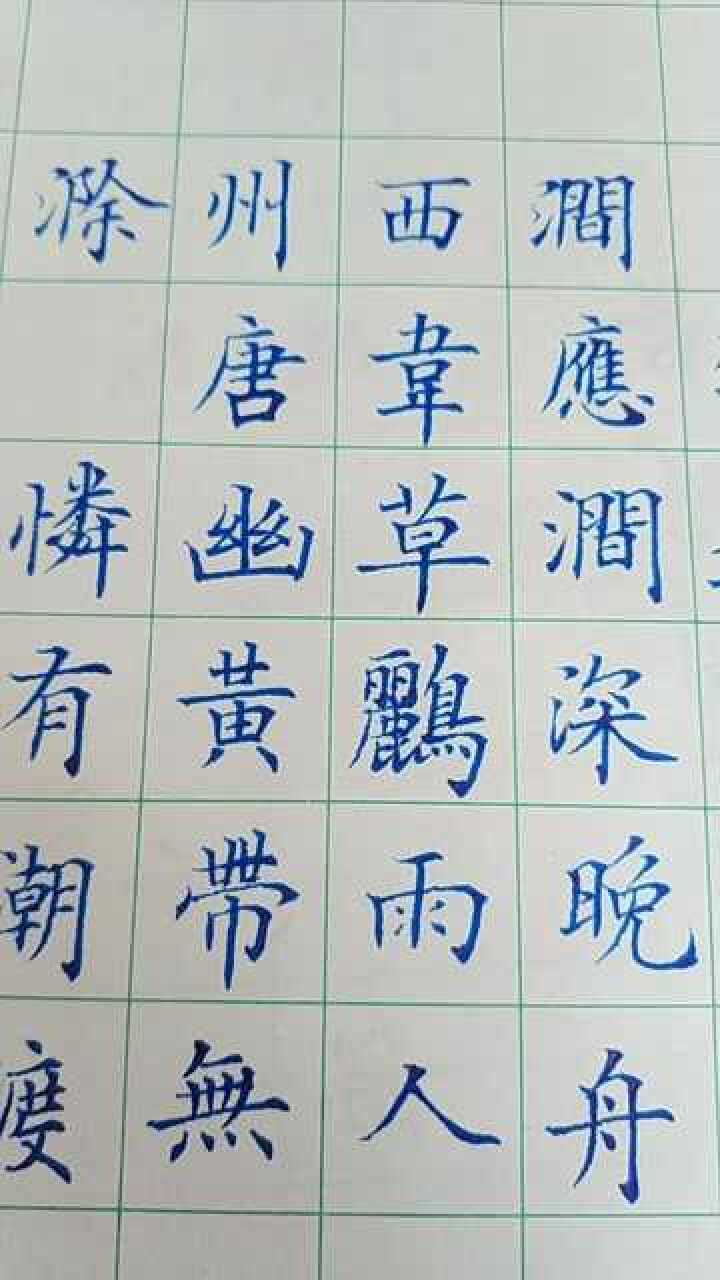 滁州西澗
唐韋應
憐幽草澗
有黃鸝深
潮帶雨晚
度無人舟